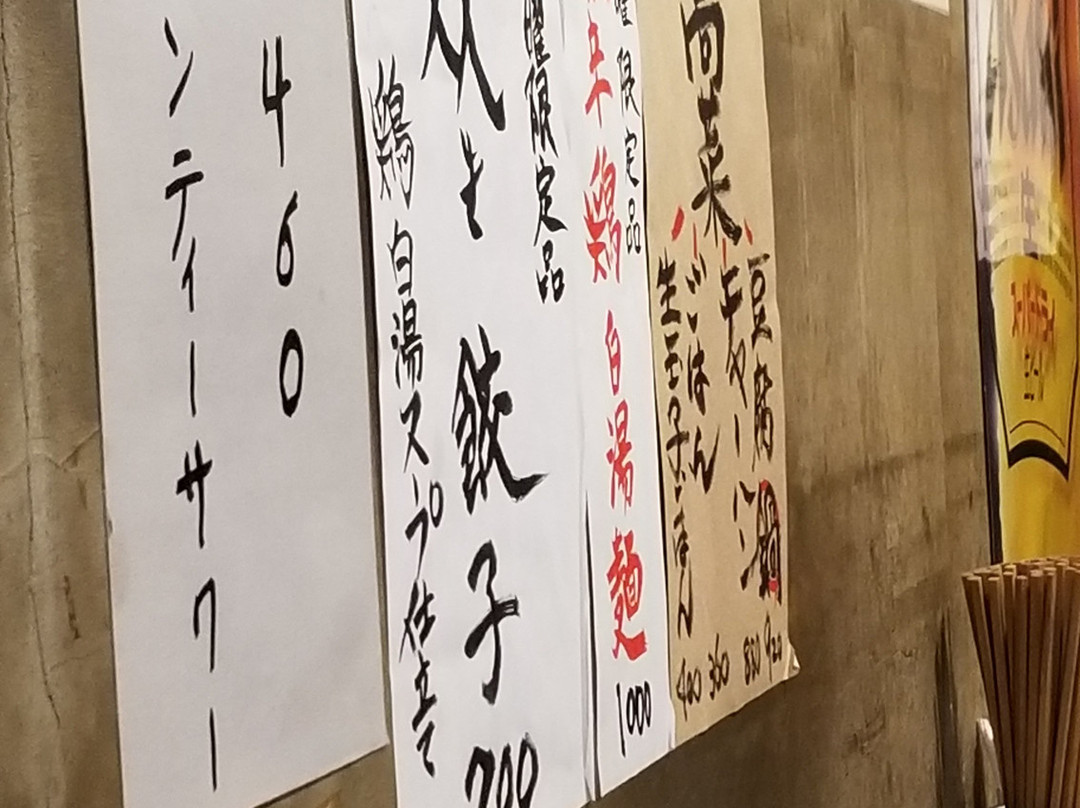 豆腐鍋 920
チャーハン 880
ごはん 360
生玉子ごはん 400
曜限定品
辛鶏白湯麺 1000
曜限定品
餃子 700
鶏白湯スープ仕立て
460
ンティーサワー